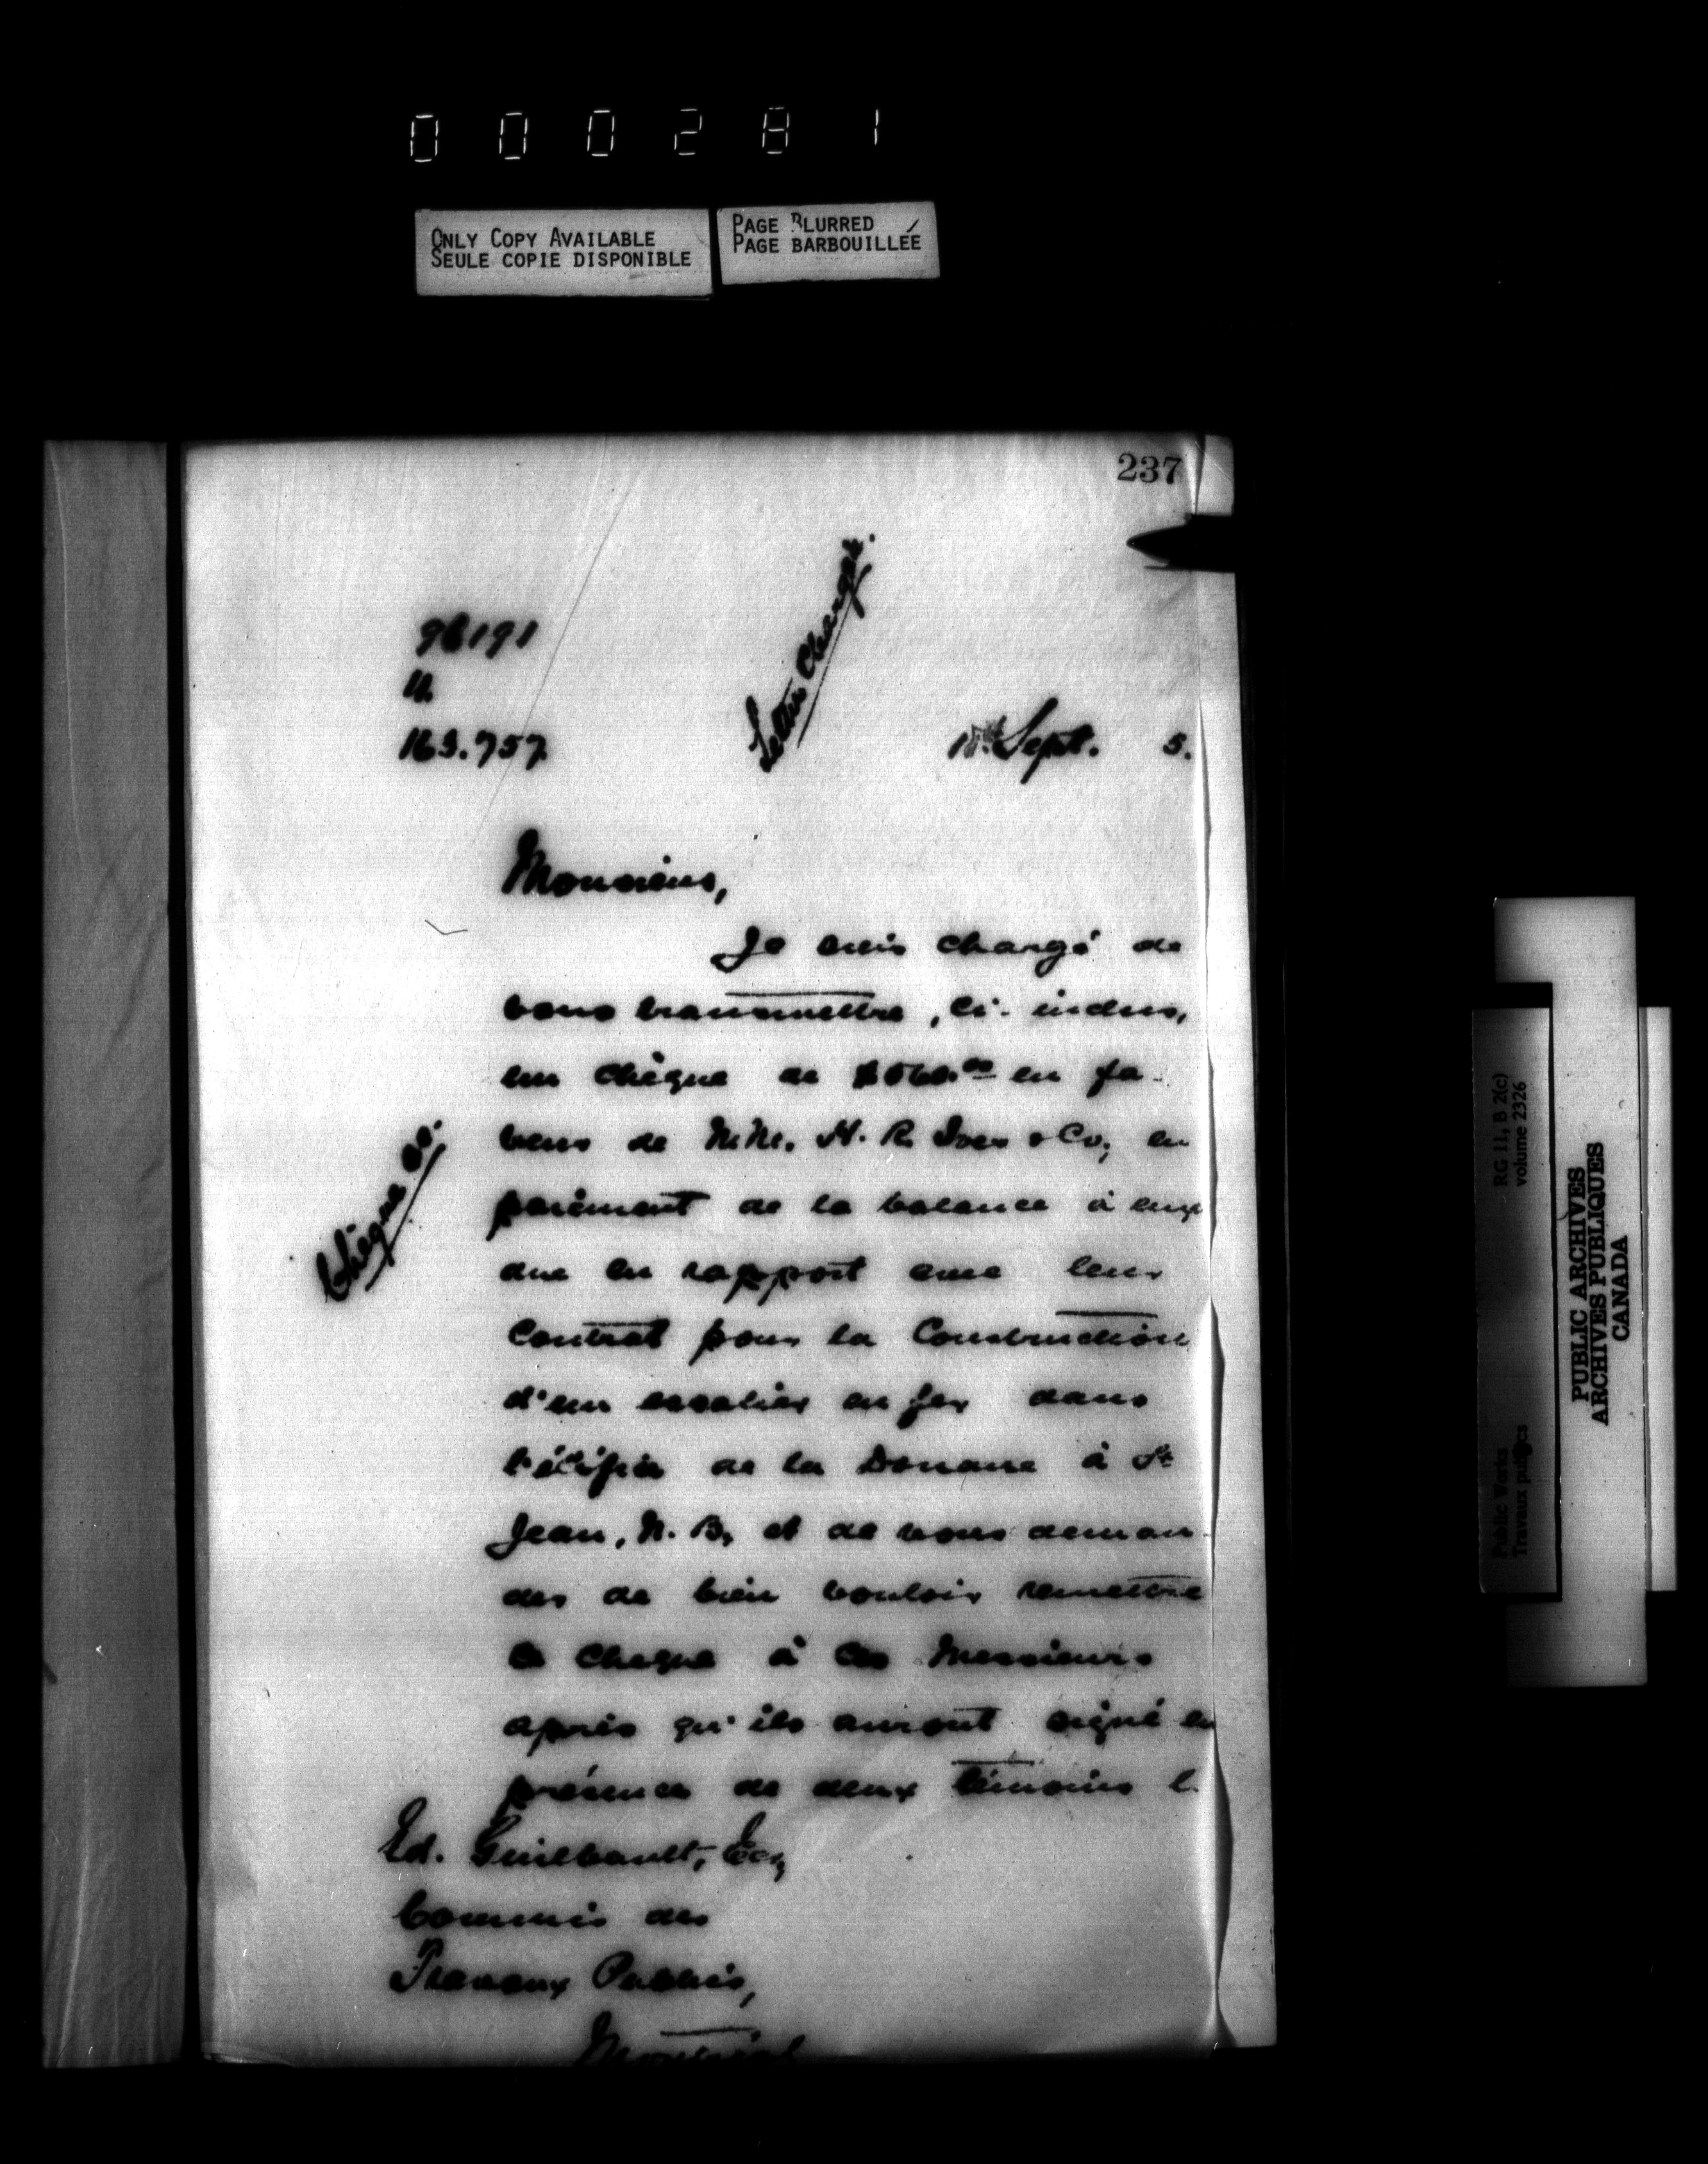 000281
ONLY COPY AVAILABLE
SEULE COPIE DISPONIBLE
PAGE BLURRED
PAGE BARBOUILLÉE
237
Letter Chargée.
98191
163.757
Sept. 5.
Monsieur,
Je suis chargé de
vous transmettre, ci-inclus,
un chèque de en fa-
veur de MM. H. R. Ives & Co; en
paiement de la balance à eux
due en rapport avec leur
Contrat pour la Construction
d'un escalier en fer dans
l'édifice de la Douane à St
Jean, N. B, et de vous deman-
der de bien vouloir remettre
ce cheque à ces Messieurs
après qu'ils auront signé en
présence de deux témoins l
Chèque
Ed. Guilbault, Ecr,
Commis des
Travaux Publics,
Montréal
RG 11, B 2(c)
volume 2326
Public Works
Travaux publics
PUBLIC ARCHIVES
ARCHIVES PUBLIQUES
CANADA